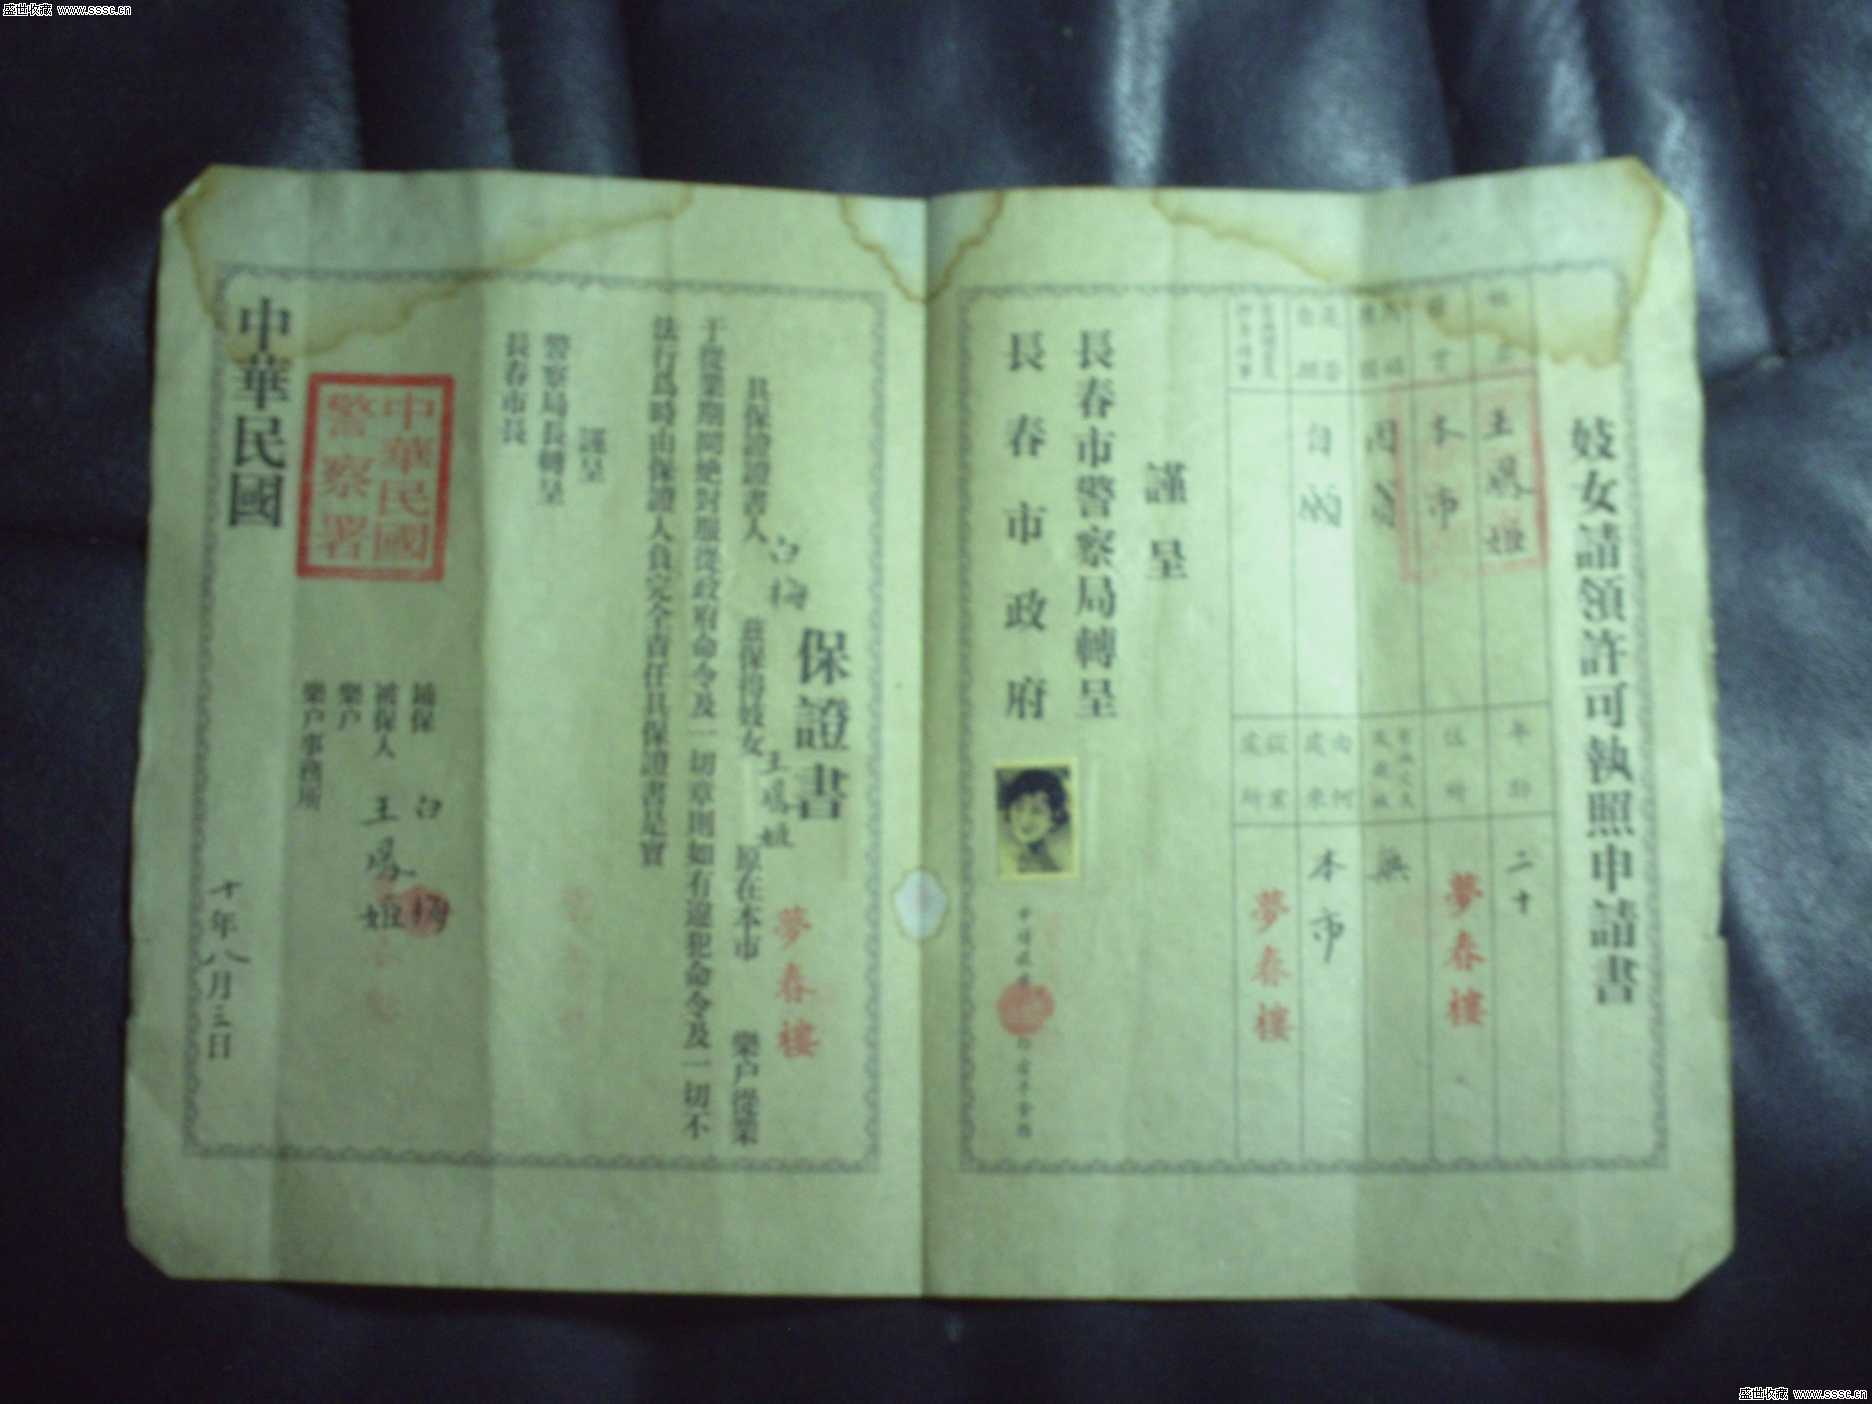 盛世收藏 www.sssc.cn
妓女請領許可執照申請書
年齡
二十
本市
住所
夢春樓
無
自
向何處來
本市
從業處所
夢春樓
謹呈
長春市警察局轉呈
長春市政府
保證書
具保證證書人 白梅 茲保得妓女 王鳳姬 原在本市 夢春樓 樂户從業
于從業期間絶対服從政府命令及一切章則如有違犯命令及一切不
法行為時由保證人負完全責任具保證書是實
謹呈
警察局長轉呈
長春市長
白梅
被保人 王鳳姬
樂户
樂户事務所
中華民國
警察署
中華民國
十年八月三日
盛世收藏 www.sssc.cn